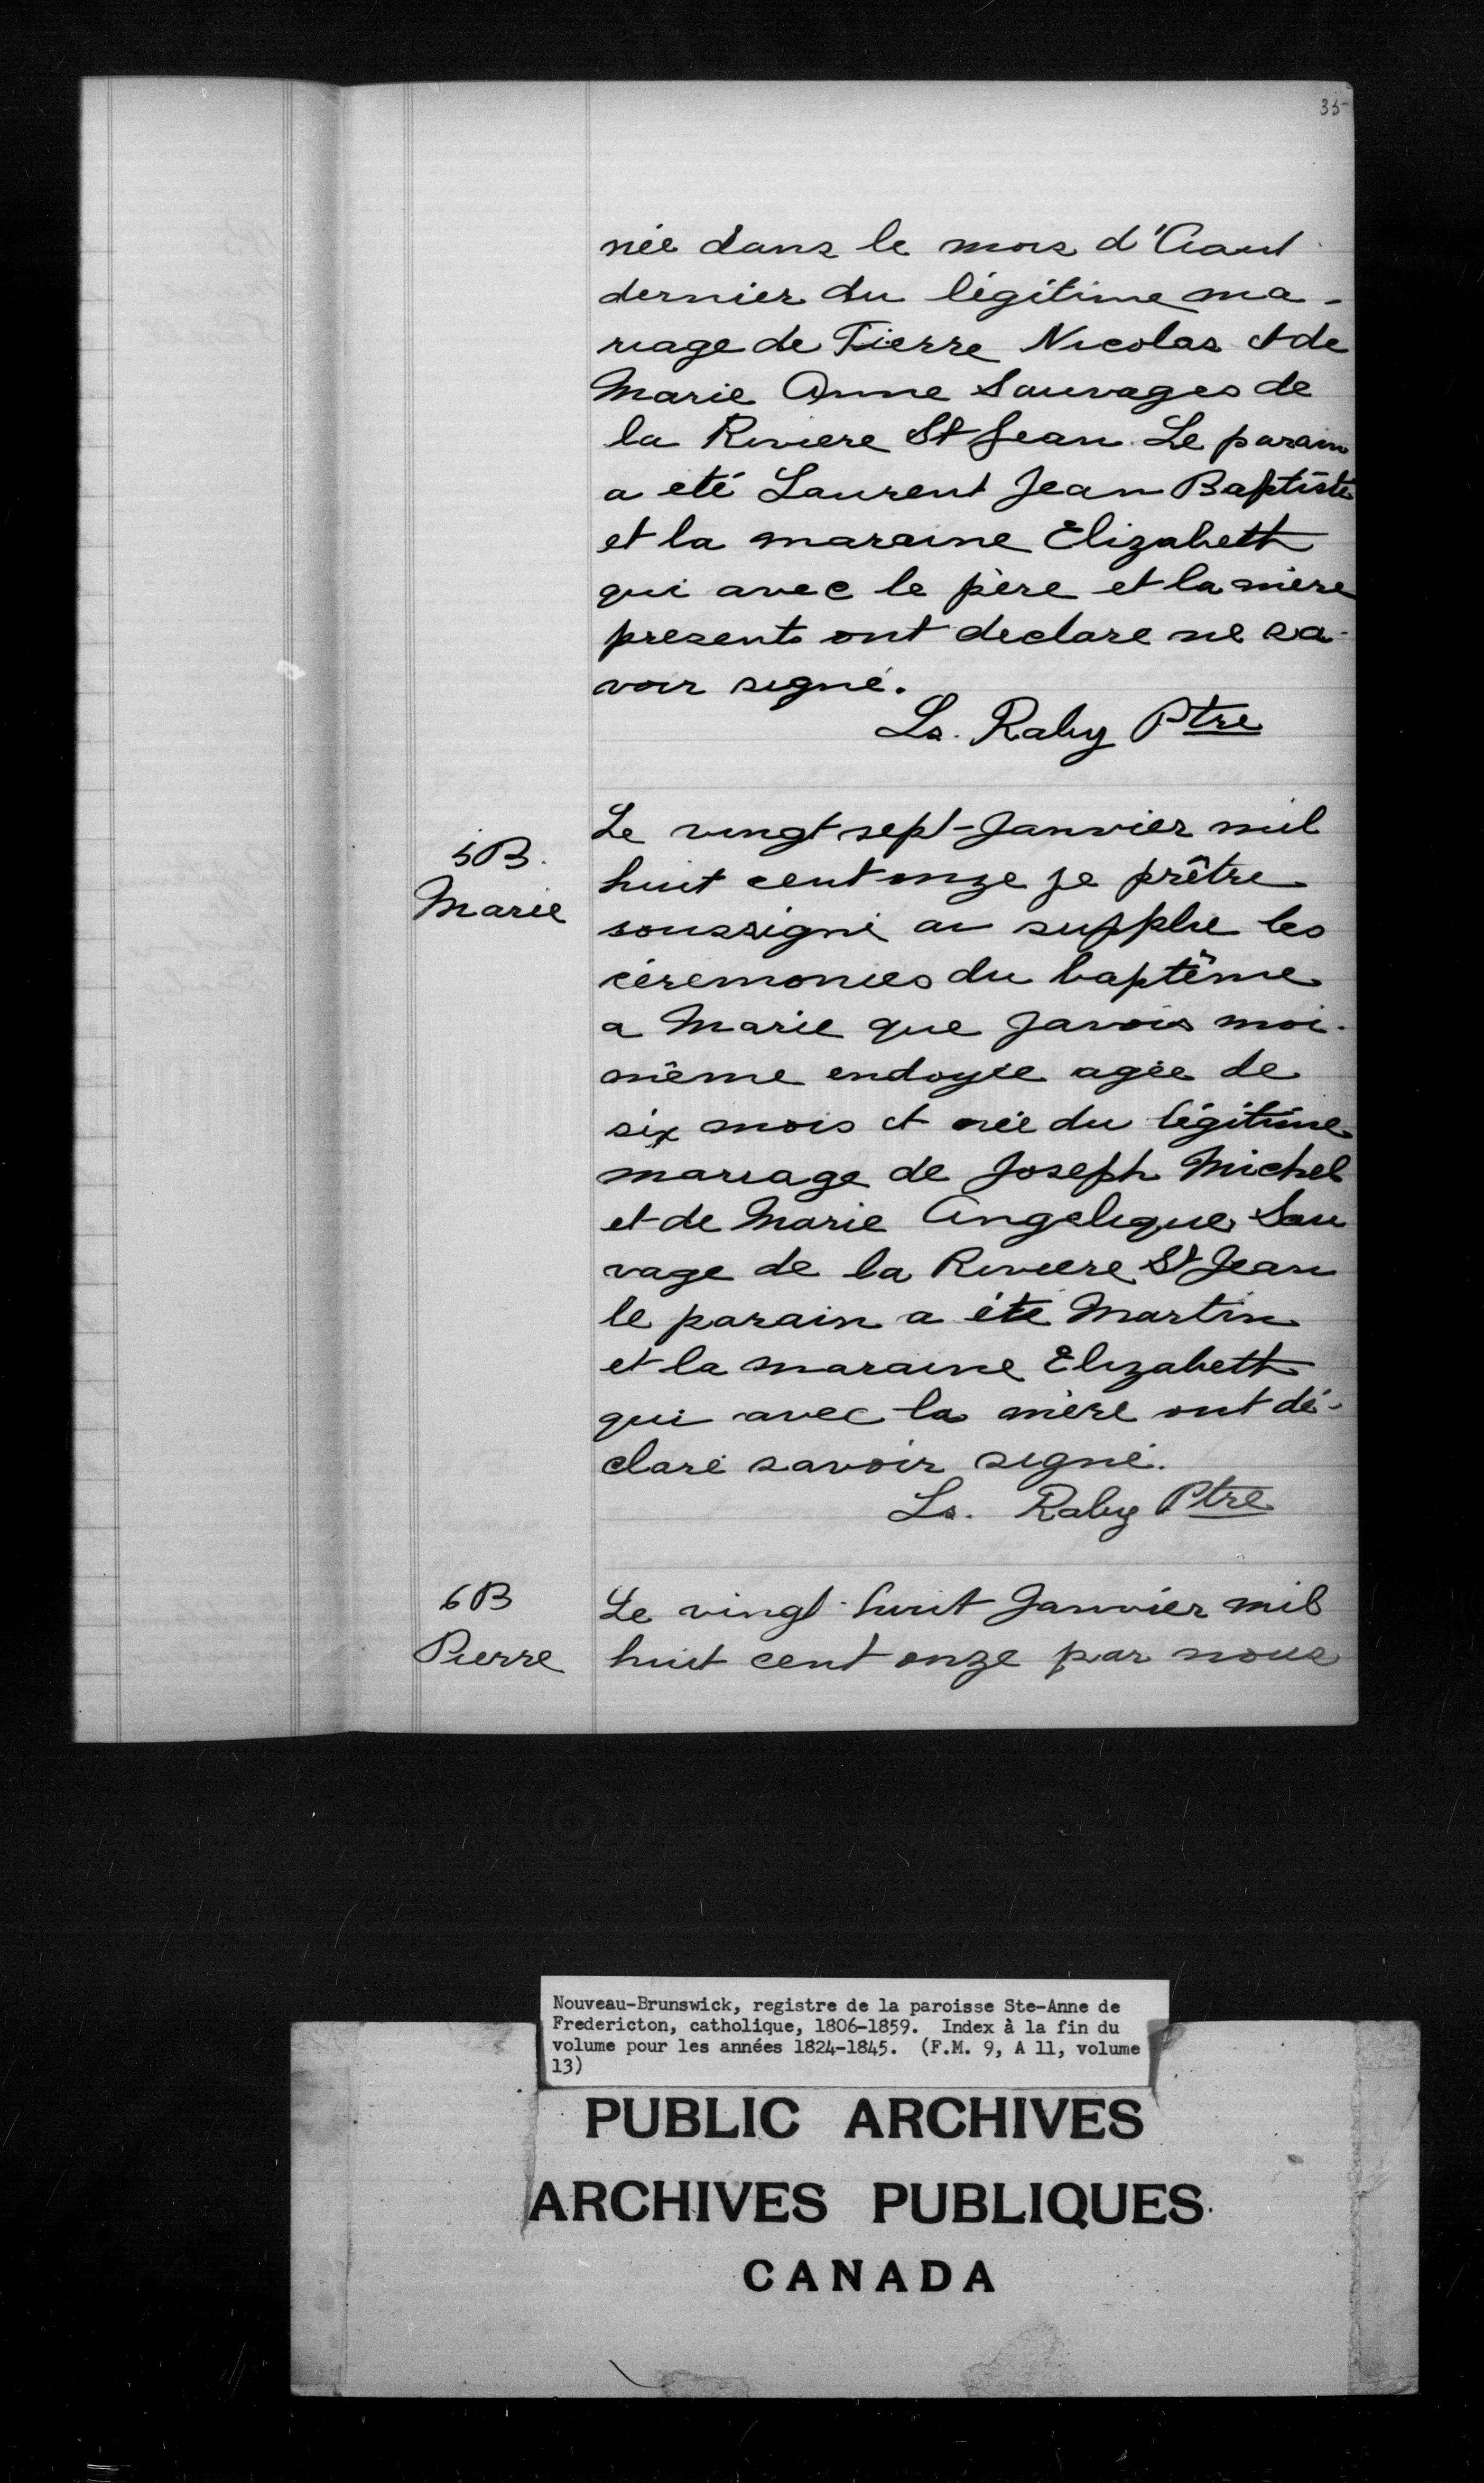 35
née dans le mois d'Aout
dernier du légitime ma-
riage de Pierre Nicolas et de
Marie Anne Sauvages de
la Riviere St Jean. Le parain
a eté Laurent Jean Baptiste
et la maraine Elizabeth
qui avec le père et la mère
presents ont declare ne sa-
voir signé.
Ls. Raby Ptre
5B.
Marie
Le vingt sept-Janvier mil
huit cent onze je prêtre
soussigné ai supplée les
céremonies du baptême
a Marie que Javois moi-
même endoyée agée de
six mois et née du légitime
mariage de Joseph Michel
et de Marie Angelique Sau
vage de la Riviere St Jean
le parain a été Martin
et la maraine Elizabeth
qui avec la mère ont dé-
claré savoir signé.
Ls. Raby Ptre
6B
Pierre
Le vingt-huit Janvier mil
huit cent onze par nous
Nouveau-Brunswick, registre de la paroisse Ste-Anne de
Fredericton, catholique, 1806-1859. Index à la fin du
volume pour les années 1824-1845. (F.M. 9, A 11, volume
13)
PUBLIC ARCHIVES
ARCHIVES PUBLIQUES
CANADA